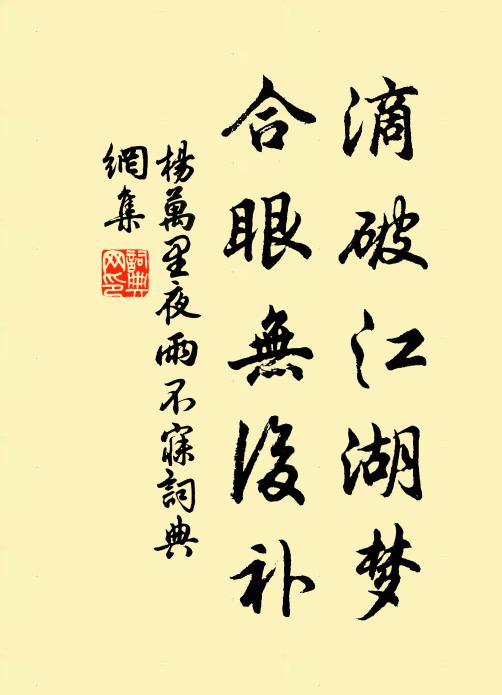 滴破江湖梦
合眼無復补
楊萬里夜雨不寐詞典
網集
詞典
网印